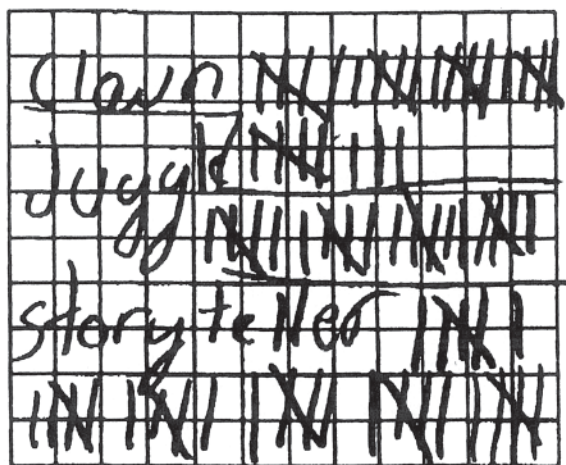 Clown
Juggle
story teller